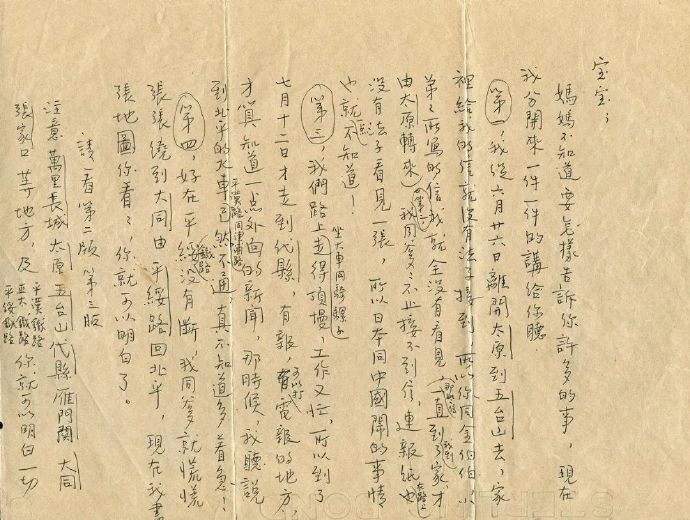 宝宝；
媽媽不知道要怎樣告訴你許多的事，現在
我分開來一件一件的講給你聽．
第一，我從六月廿六日離開太原到五台山去，家
裡給我的信就沒有法子接到，所以你同金伯伯、
所寫的信我就全沒有看見（那些信一直到了家，才
由太原轉來）
第二，我同爹爹不止接不到信，連報紙也
沒有法子看見一張，所以日本同中國鬧的事情
也就不知道！
第三，我們路上坐大車同騎騾子，走得頂慢，工作又忙，所以到了
七月十二日才走到代縣，有報，可以打電報的地方，
才算知道一点外面的新聞，那時候，我聽說
到北平的火車，平漢路同津浦路已然不通，真不知道多着急！
第四，好在平綏鐵路沒有斷，我同爹爹就慌慌
張張繞到大同由平綏路回北平，現在我畫
張地圖你看看，你就可以明白了。
請看第二版 第三版
注意萬里長城太原五台山代縣雁門關大同
張家口等地方，及平漢鐵路正太鐵路平綏鐵路你就可以明白一切